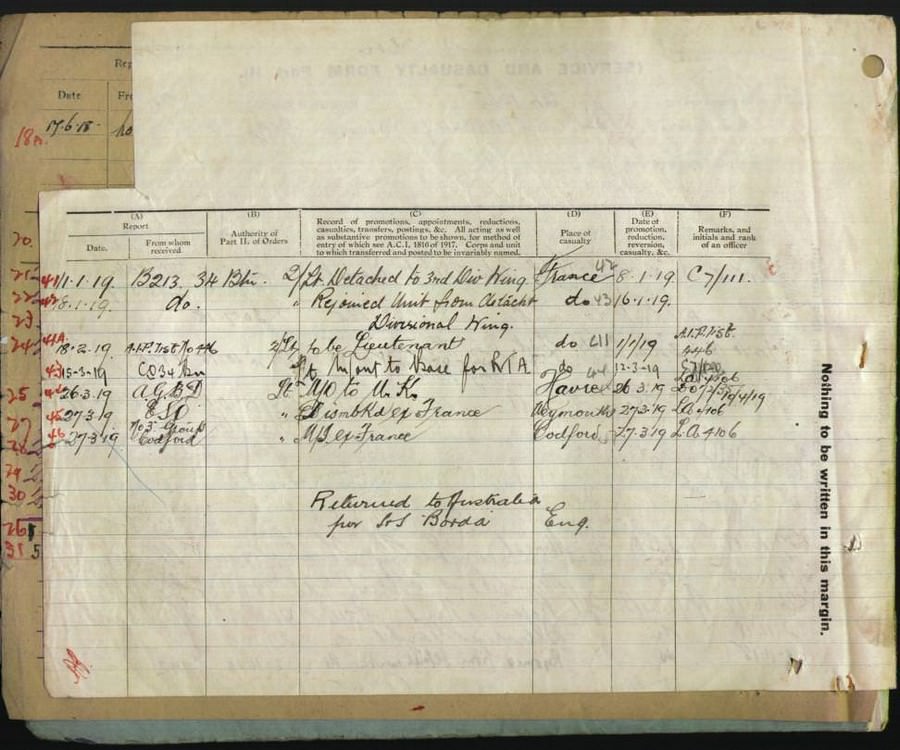 Date
17.6.18
18
(A)
Report
Date.
From whom received
(B)
Authority of Part II. of Orders
(C)
Record of promotions, appointments, reductions,
casualties, transfers, postings, &c. All acting as well
as substantive promotions to be shown, for method of
entry of which see A.C.I. 1816 of 1917. Corps and unit
to which transferred and posted to be invariably named.
(D)
Place of casualty
(E)
Date of
promotion,
reduction,
reversion,
casualty, &c.
(F)
Remarks, and
initials and rank
of an officer
20.
21 41 11.1.19. B213. 34 Btn. 2/Lt Detached to 3rd Div Wing. France 42 8.1.19. C7/111.
22 18.1.19. do. " Rejoined Unit from detacht do 43 16.1.19.
23 Divisional Wing.
24 41A 18.2.19. A.I.F. List No 446 2/Lt to be Lieutenant do 611 1/1/19 A.I.F. List 446
15-3-19 CO 34 Bn Lt M out to Base for RTA do 44 12-3-19
25 26.3.19 AGBD Lt MO to U.K. Havre 26.3.19 19/4/19
27 45 27.3.19 ESO " Dismbkd ex France Weymouth 27.3.19 La 4106
46 27.3.19 No 3 Group Codford " M/I ex France Codford 27.3.19 L.a 4106
29
30
Returned to Australia
per S.S Borda Eng.
26
31 5
Nothing to be written in this margin.